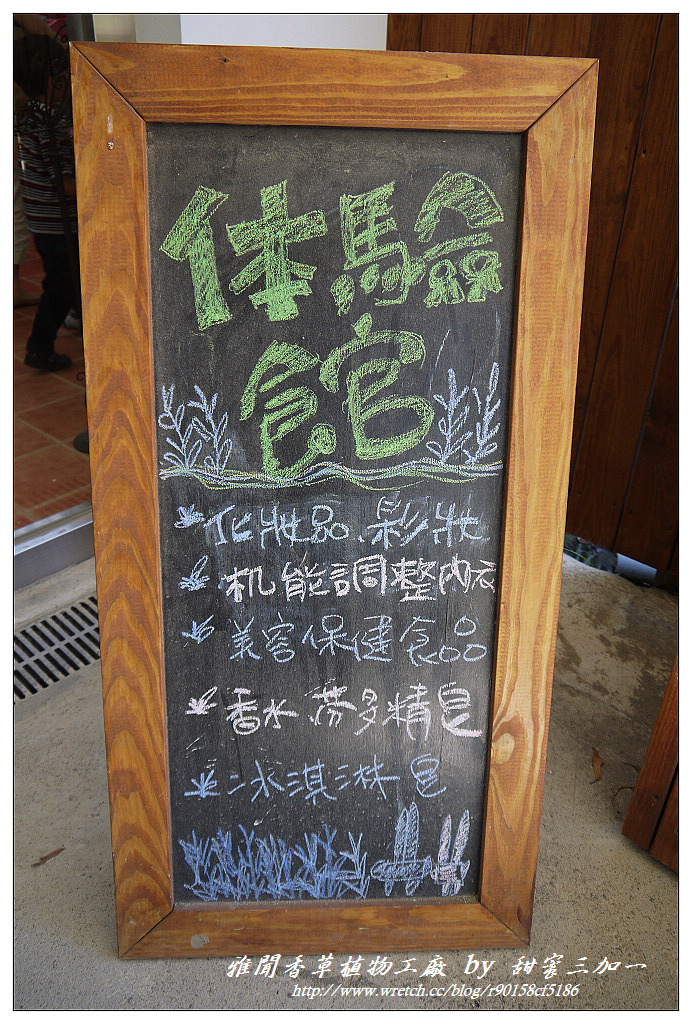 体驗
館
化妝品、彩妝
机能調整內衣
美容保健食品
香水、芬多精皂
冰淇淋皂
雅聞香草植物工廠 by 甜蜜三加一
http://www.wretch.cc/blog/r90158cf5186